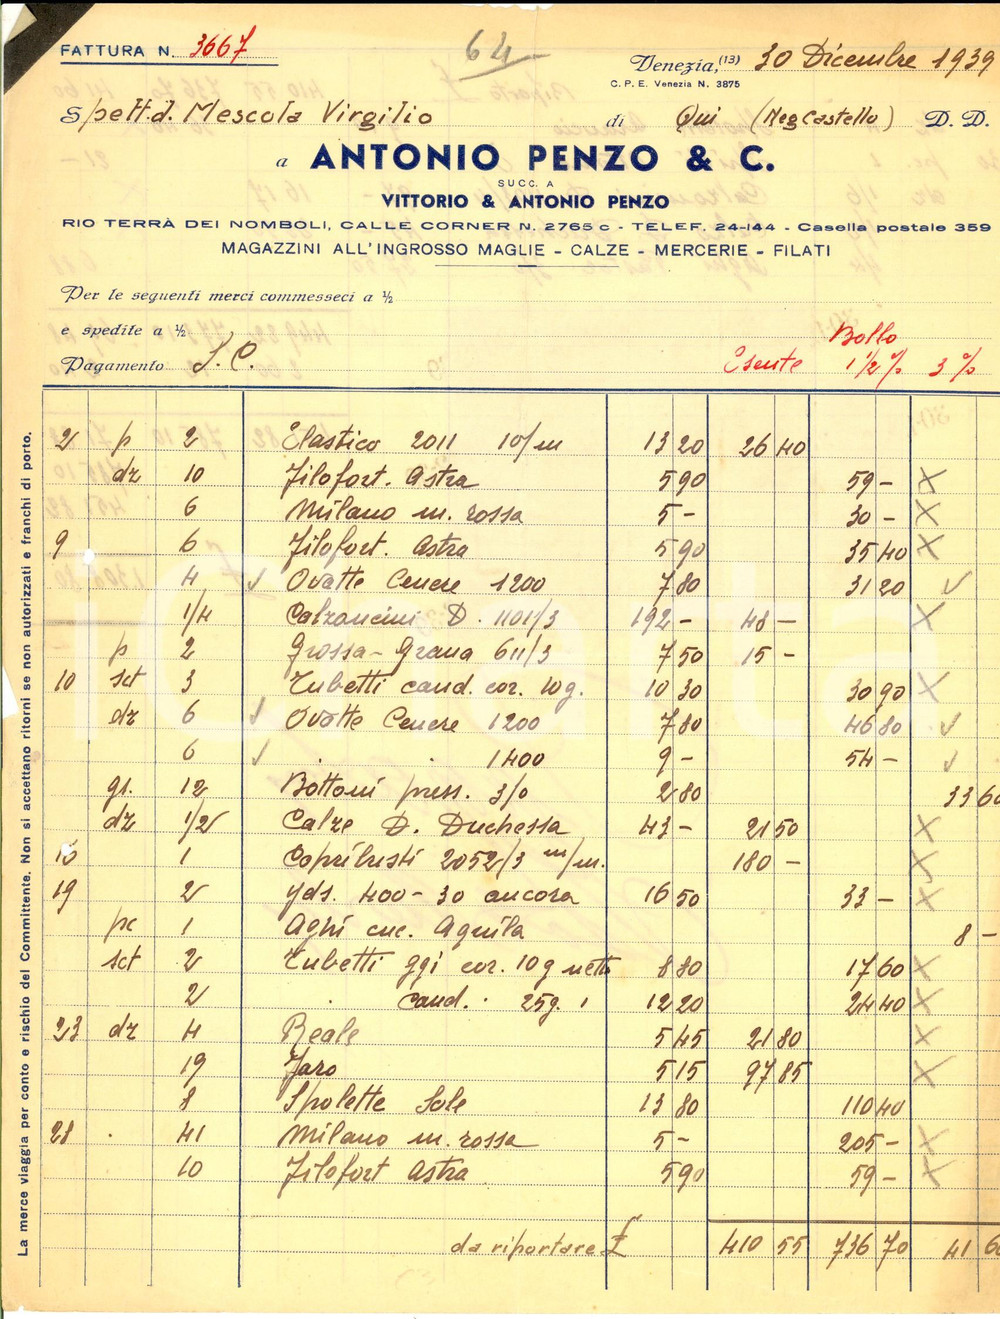 FATTURA N. 3667
64 -
Venezia, (13) 30 Dicembre 1939
C. P. E. Venezia N. 3875
Spett.d. Mescola Virgilio di Qui (Neg Castello) D. D.
a ANTONIO PENZO & C.
SUCC. A
VITTORIO & ANTONIO PENZO
RIO TERRÀ DEI NOMBOLI, CALLE CORNER N. 2765 c - TELEF. 24-144 - Casella postale 359
MAGAZZINI ALL'INGROSSO MAGLIE - CALZE - MERCERIE - FILATI
Per le seguenti merci commesseci a ½
e spedite a ½
Pagamento S. C.
Bollo
Esente 1 1/2 % 3 %
2 p 2 Elastico 2011 10/m 13 20 26 40
dz 10 Filofort. Astra 5 90 59 -
6 Milano m. rossa 5 - 30 -
9 6 Filofort. Astra 5 90 35 40
4 Ovatte Cenere 1200 7 80 31 20
1/4 Calzoncini D. 1101/3 192 - 48 -
p 2 Grossa - Grana 611/3 7 50 15 -
10 sct 3 Tubetti cand. cor. 10g. 10 30 30 90
dz 6 Ovatte Cenere 1200 7 80 46 80
6 . . 1400 9 - 54 -
gr. 12 Bottoni press. 3/0 2 80 33 60
dz 1/2 Calze D. Duchessa 43 - 21 50
1 Copribusti 2052/3 m/m. 180 -
19 2 yds. 400 - 30 ancora 16 50 33 -
pc 1 Aghi cuc. Aquila 8 -
sct 2 Tubetti ggi cor. 10g netti 8 80 17 60
2 . cand. . 25g. 12 20 24 40
23 dz 4 Reale 5 45 21 80
19 Jaro 5 15 97 85
8 Spolette Sole 13 80 110 40
28 . 41 Milano m. rossa 5 - 205 -
10 Filofort Astra 5 90 59 -
da riportare £ 410 55 736 70 41 60
La merce viaggia per conto e rischio del Committente. Non si accettano ritorni se non autorizzati e franchi di porto.